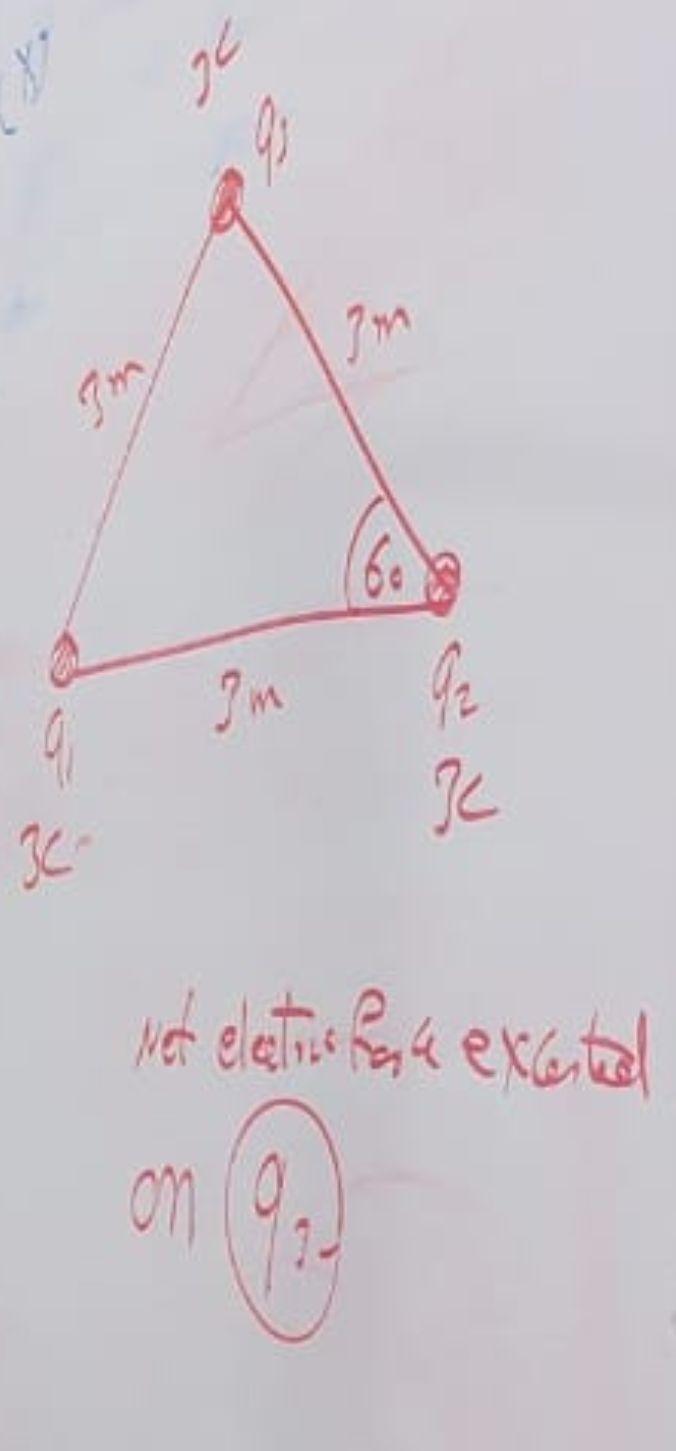 3C
q3
3m
3m
60
3m
q1
q2
3C
3C
Net electric force exerted
on q2